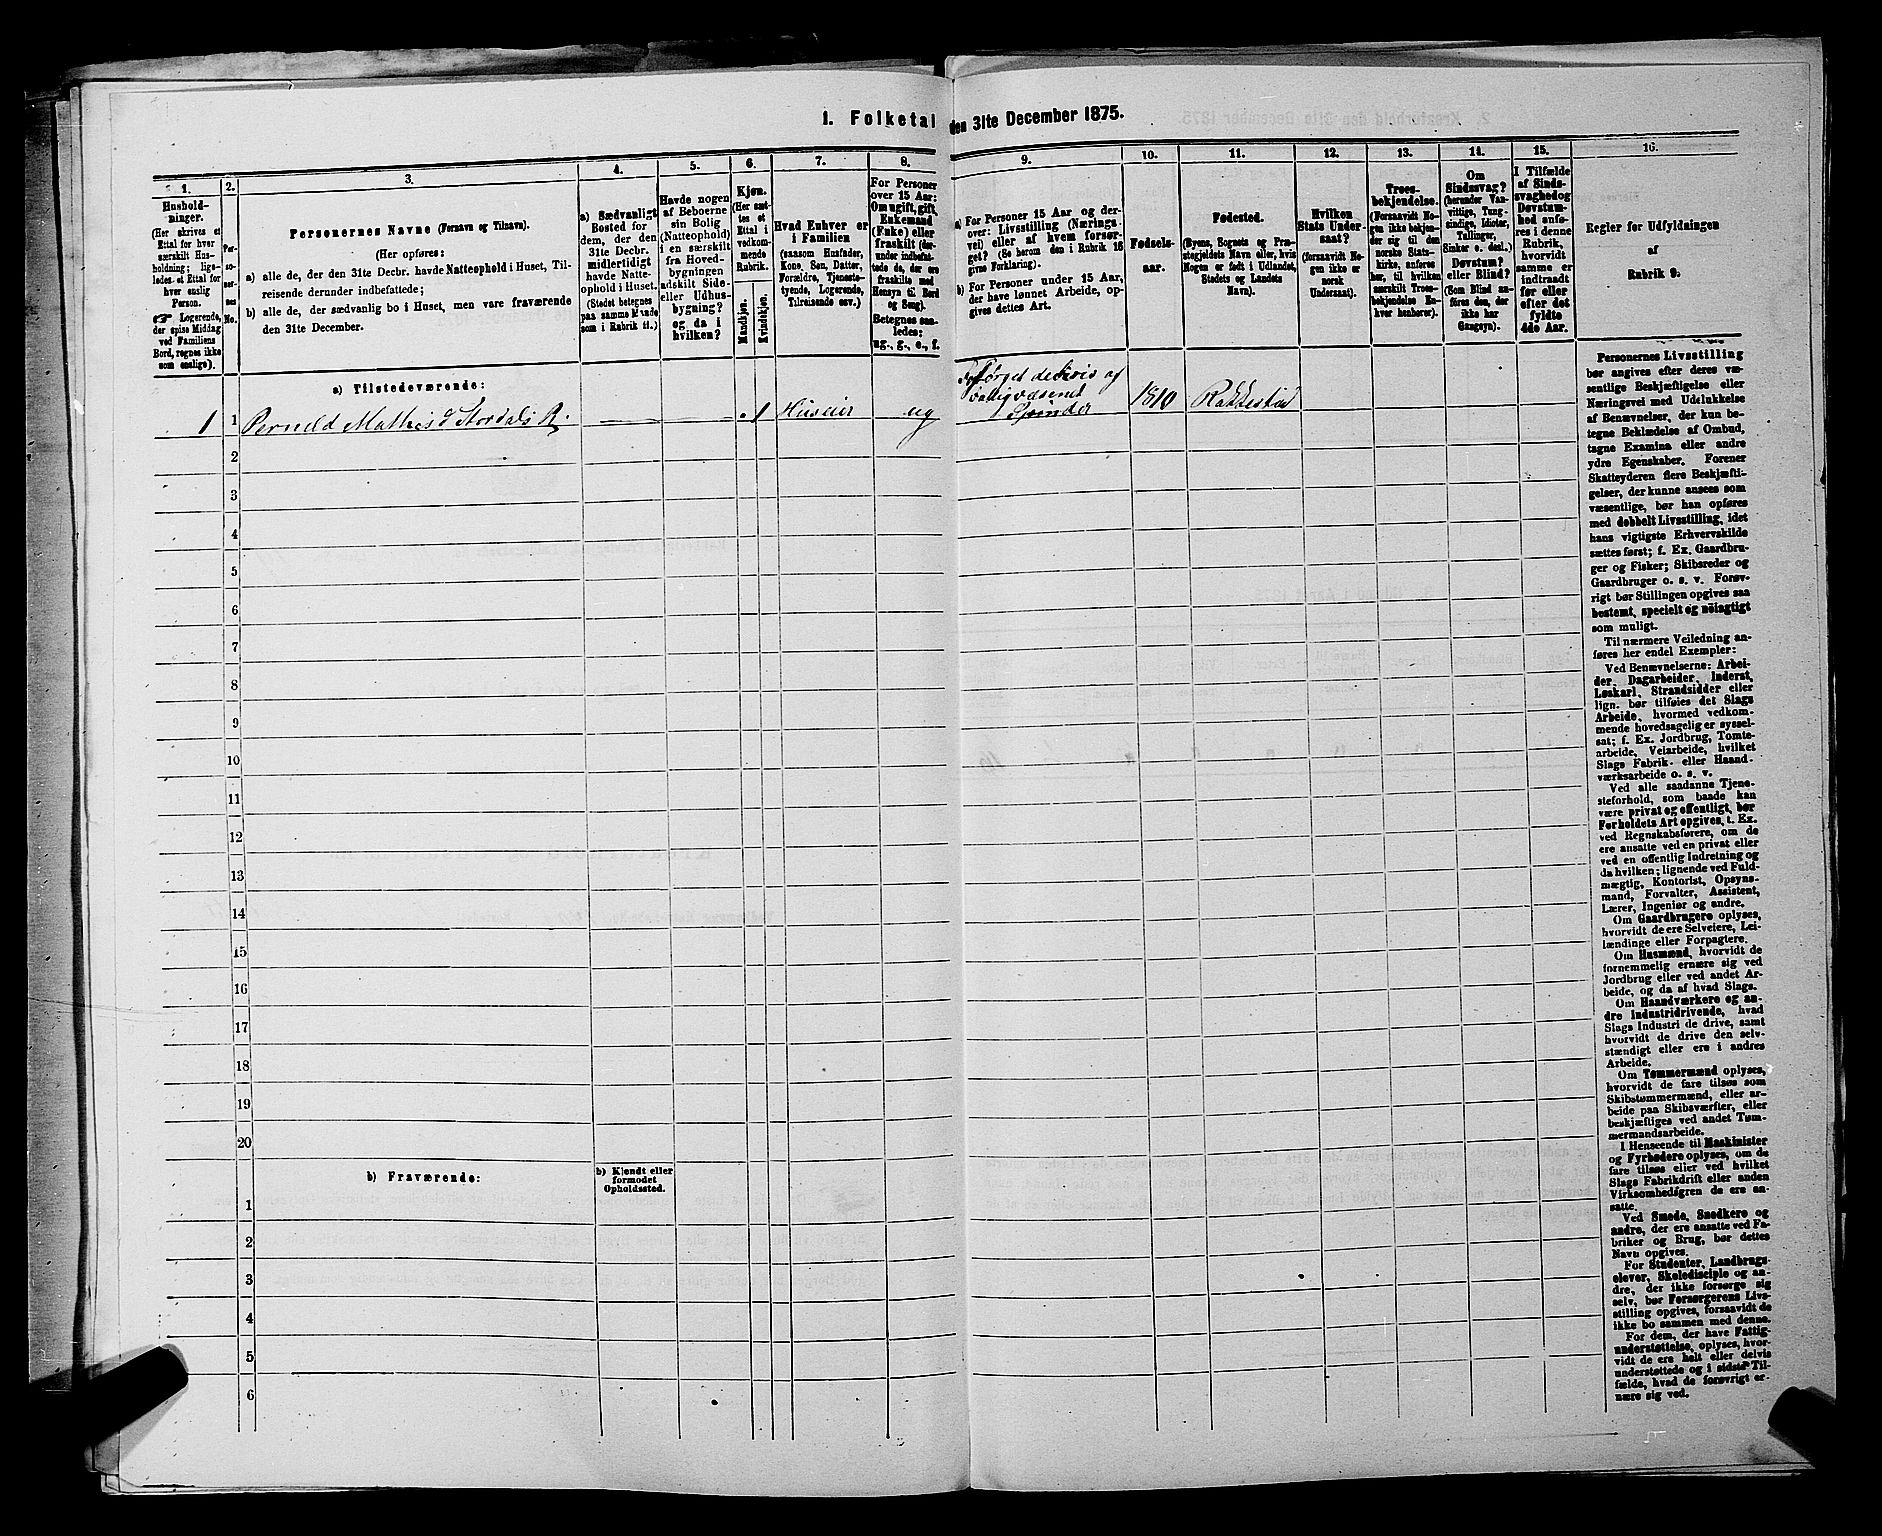 1. Folketal den 31te December 1875.
1.
Hushold-
ninger.
(Her skrives et
Ettal for hver
særskilt Hus-
holdning; lige-
ledes et Ettal for
hver enslig
Person.
☞ Logerende,
der spise Middag
ved Familiens
Bord, regnes ikke
som enslige).
2.
Per-
so-
ner-
nes
No.
3.
Personernes Navne (Fornavn og Tilnavn).
(Her opføres:
a) alle de, der den 31te Decbr. havde Natteophold i Huset, Til-
reisende derunder indbefattede;
b) alle de, der sædvanlig bo i Huset, men vare fraværende
den 31te December.
4.
a) Sædvanligt
Bosted for
dem, der den
31te Decbr.
midlertidigt
havde Natte-
ophold i Huset.
(Stedet betegnes
paa samme Maade
som i Rubrik 11.)
5.
Havde nogen
af Beboerne
sin Bolig
(Natteophold)
i en særskilt
fra Hoved-
bygningen
adskilt Side-
eller Udhus-
bygning?
og da i
hvilken?
6.
Kjøn.
(Her sæt-
tes et
Ettal i
vedkom-
mende
Rubrik.
Mandkjøn.
Kvindekjøn.
7.
Hvad Enhver er
i Familien
(saasom Husfader,
Kone, Søn, Datter,
Forældre, Tjeneste-
tyende, Logerende,
Tilreisende osv.)
8.
For Personer
over 15 Aar:
Om ugift, gift,
Enkemand
(Enke) eller
fraskilt (der-
under indbefat-
tede de, der ere
fraskilte med
Hensyn til Bord
og Seng).
Betegnes saa-
ledes:
ug., g., e., f.
9.
a) For Personer 15 Aar og der-
over: Livsstilling (Nærings-
vei) eller af hvem forsør-
get? (Se herom den i Rubrik 16
givne Forklaring).
b) For Personer under 15 Aar,
der have lønnet Arbeide, op-
gives dettes Art.
10.
Fødsels-
aar.
11.
Fødested.
(Byens, Sognets og Præ-
stegjeldets Navn eller, hvis
Nogen er født i Udlandet,
Stedets og Landets
Navn).
12.
Hvilken
Stats Under-
saat?
(forsaavidt No-
gen ikke er
norsk
Undersaat).
13.
Troes-
bekjendelse.
(Forsaavidt No-
gen ikke bekjen-
der sig til den
norske Stats-
kirke, anføres
her, til hvilken
særskilt Troes-
bekjendelse En-
hver henhører).
14.
Om
Sindssvag?
(herunder Van-
vittige, Tung-
sindige, Idioter,
Tullinger,
Sinker o. desl.)
Døvstum?
eller Blind?
(Som Blind an-
føres den, der
ikke har
Gangsyn).
15.
I Tilfælde
af Sinds-
svaghed og
Døvstum-
hed anfø-
res i denne
Rubrik,
hvorvidt
samme er
indtraadt
før eller
efter det
fyldte
4de Aar.
16.
Regler for Udfyldningen
af
Rubrik 9.
a) Tilstedeværende:
1 1 Pernild Mathisd Stordals R. 1 Huseier ug
Forsørget delvis af
Fattigvæsenet
Spinder
1810 Rakkestad
2
3
4
5
6
7
8
9
10
11
12
13
14
15
16
17
18
19
20
b) Fraværende:
b) Kjendt eller
formodet
Opholdssted.
1
2
3
4
5
6
Personernes Livsstilling
bør angives efter deres væ-
sentlige Beskjæftigelse eller
Næringsvei med Udelukkelse
af Benævnelser, der kun be-
tegne Beklædelse af Ombud,
tagne Examina eller andre
ydre Egenskaber. Forener
Skatteyderen flere Beskjæfti-
gelser, der kunne ansees som
væsentlige, bør han opføres
med dobbelt Livsstilling, idet
hans vigtigste Erhvervskilde
sættes først; f. Ex. Gaardbru-
ger og Fisker; Skibsreder og
Gaardbruger o. s. v. Forøv-
rigt bør Stillingen opgives saa
bestemt, specielt og nøiagtigt
som muligt.
Til nærmere Veiledning an-
føres her endel Exempler:
Ved Benævnelserne: Arbei-
der, Dagarbeider, Inderst,
Løskarl, Strandsidder eller
lign. bør tilføies det Slags
Arbeide, hvormed vedkom-
mende hovedsagelig er syssel-
sat; f. Ex. Jordbrug, Tomte-
arbeide, Veiarbeide, hvilket
Slags Fabrik- eller Haand-
værksarbeide o. s. v.
Ved alle saadanne Tjene-
steforhold, som baade kan
være privat og offentligt, bør
Forholdets Art opgives, t. Ex.
ved Regnskabsførere, om de
ere ansatte ved en privat eller
ved en offentlig Indretning og
da hvilken; lignende ved Fuld-
mægtig, Kontorist, Opsyns-
mand, Forvalter, Assistent,
Lærer, Ingeniør og andre.
Om Gaardbrugere oplyses,
hvorvidt de ere Selveiere, Lei-
lændinge eller Forpagtere.
Om Husmænd, hvorvidt de
fornemmelig ernære sig ved
Jordbrug eller ved andet Ar-
beide, og da af hvad Slags.
Om Haandværkere og an-
dre Industridrivende, hvad
Slags Industri de drive, samt
hvorvidt de drive den selv-
stændigt eller ere i andres
Arbeide.
Om Tømmermænd oplyses,
hvorvidt de fare tilsøs som
Skibstømmermænd, eller ar-
beide paa Skibsværfter, eller
beskjæftiges ved andet Tøm-
mermandsarbeide.
I Henseende til Maskinister
og Fyrbødere oplyses, om de
fare tilsøs eller ved hvilket
Slags Fabrikdrift eller anden
Virksomhedsgren de ere an-
satte.
Ved Smede, Snedkere og
andre, der ere ansatte ved Fa-
briker og Brug, bør dettes
Navn opgives.
For Studenter, Landbrugs-
elever, Skoledisciple og an-
dre, der ikke forsørge sig
selv, bør Forsørgerens Livs-
stilling opgives, forsaavidt de
ikke bo sammen med denne.
For dem, der have Fattig-
understøttelse, oplyses, hvor-
vidt de ere helt eller delvis
understøttede og i sidste Til-
fælde, hvad de forøvrigt er-
nære sig ved.